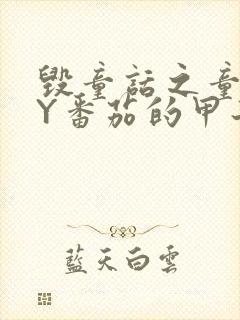 毁童话之童
Y番茄的甲
藍天白雲